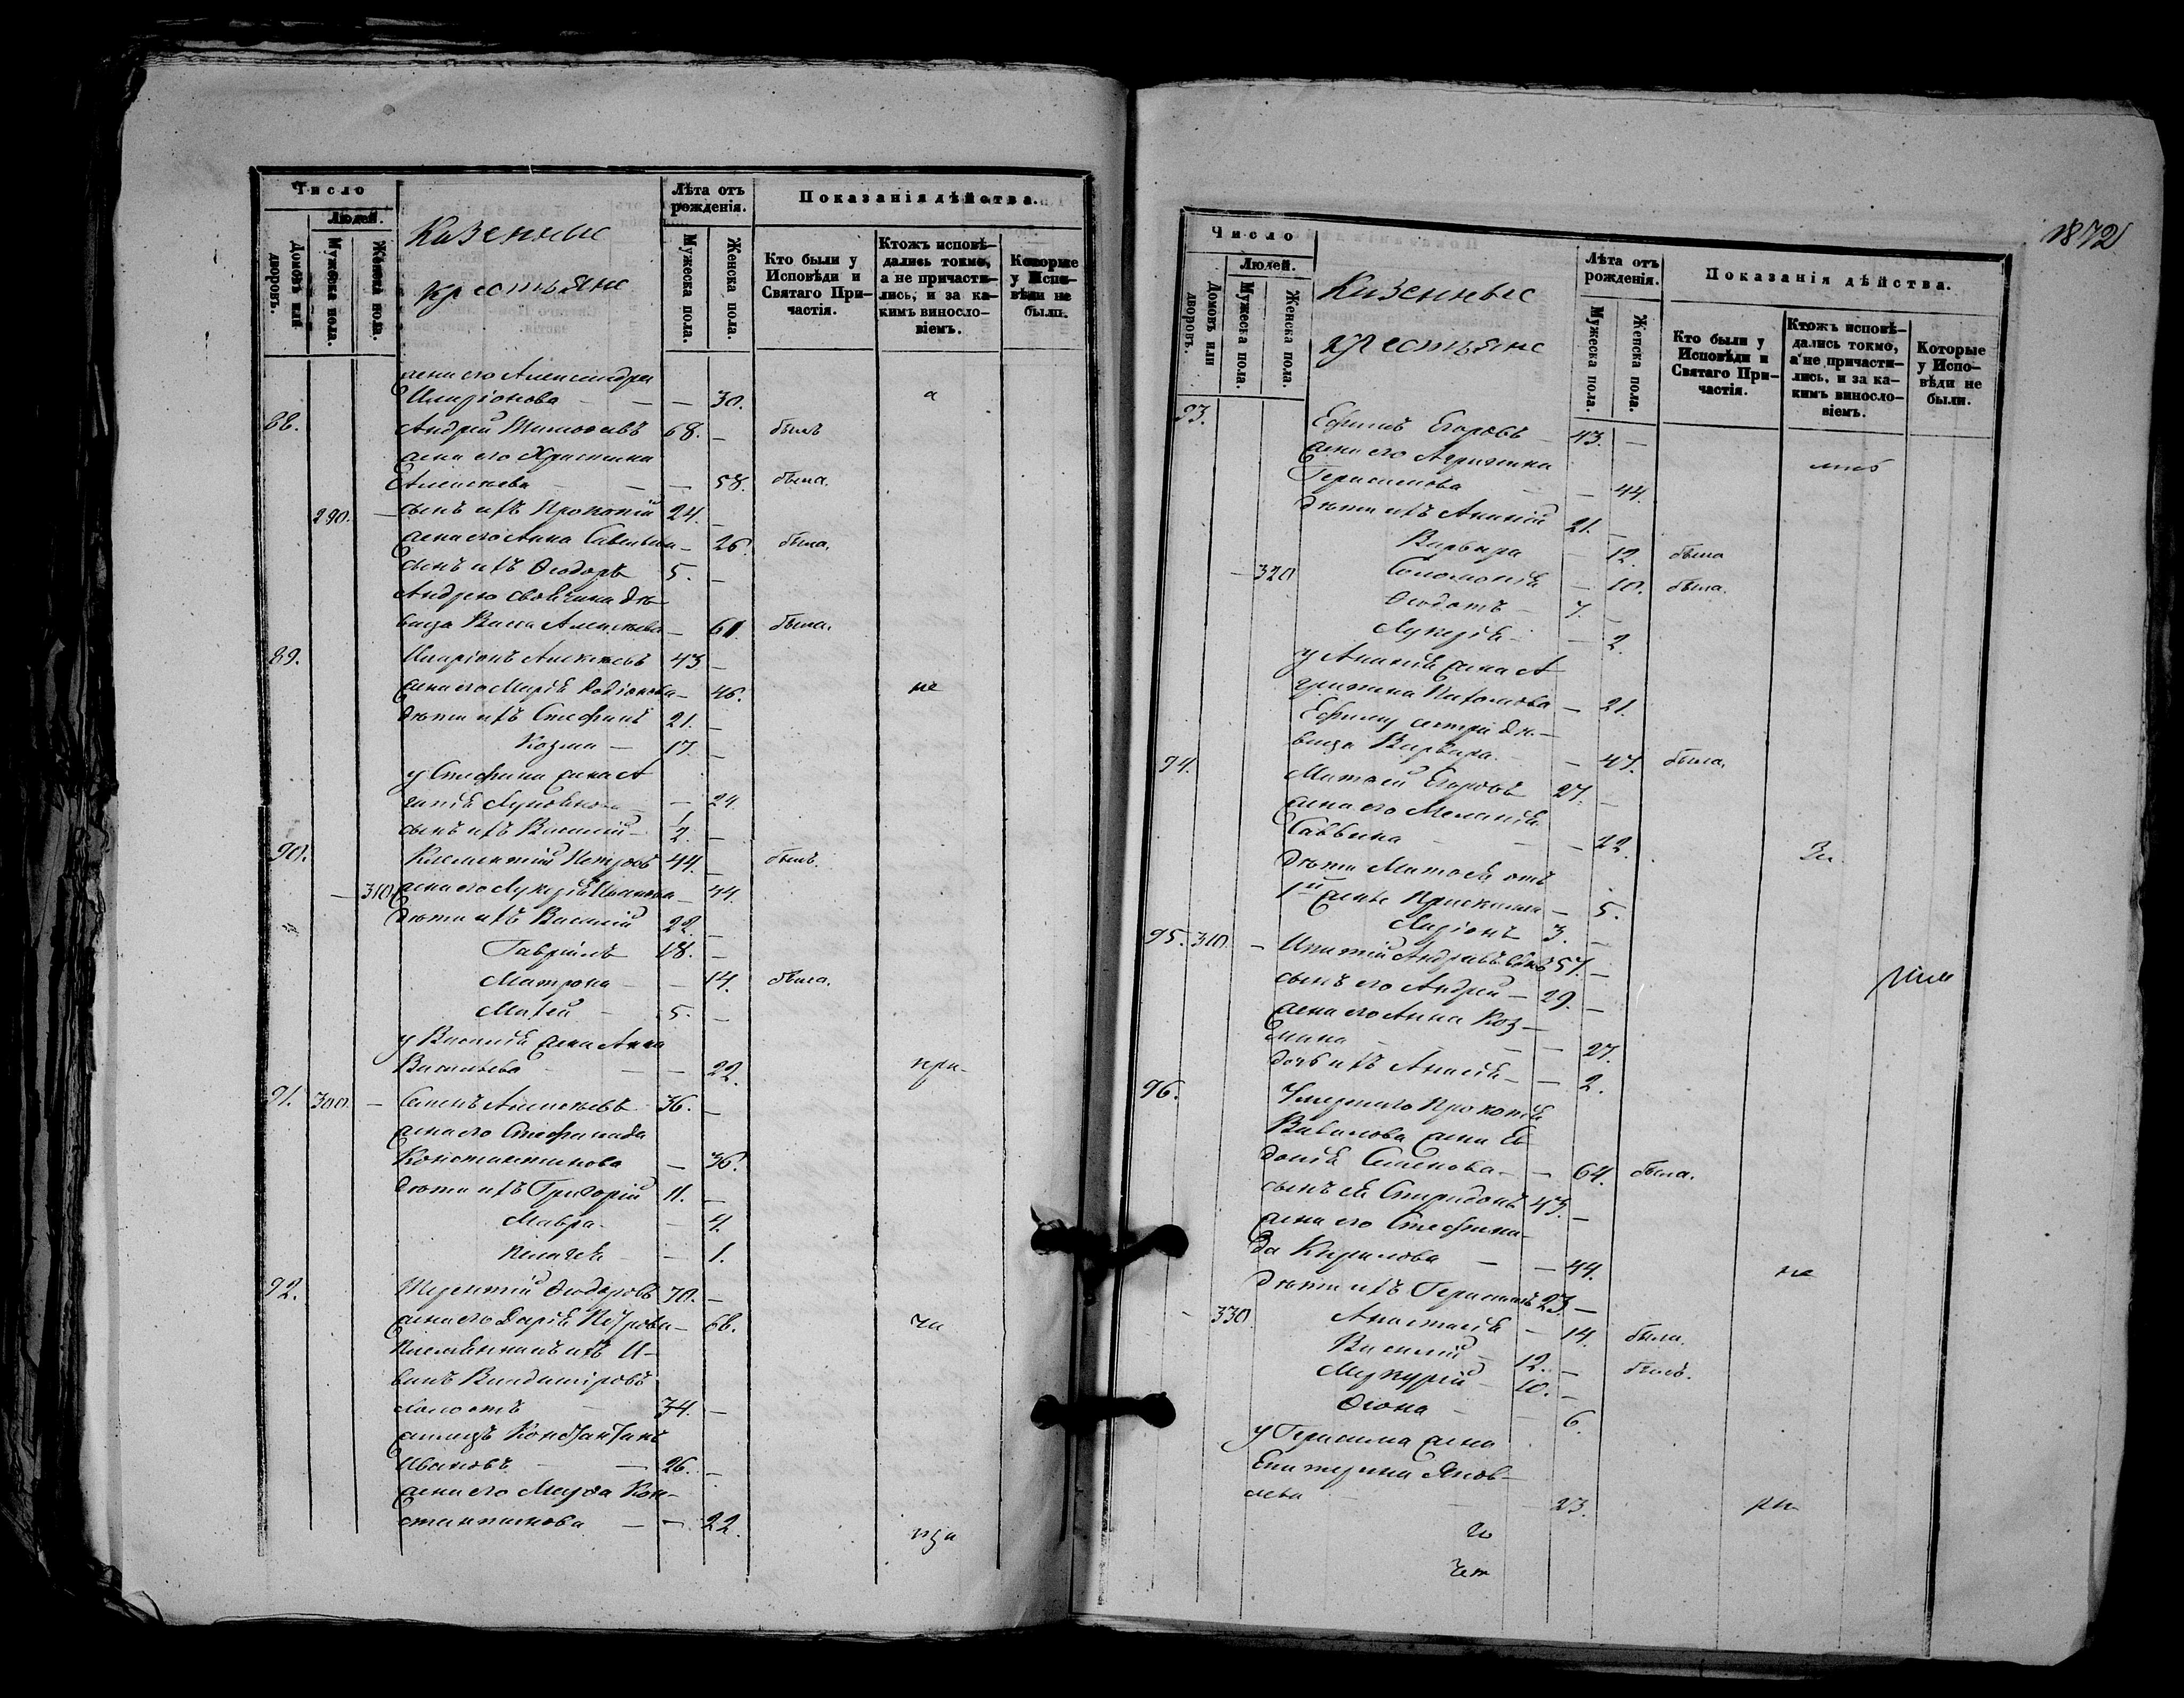 Число
Людей.
Домовъ или дворовъ.
Мужеска пола.
Женска пола.
Казенные
крестьяне
Лѣта отъ рожденія.
Мужеска пола.
Женска пола.
Показанія дѣйства.
Кто были у Исповѣди и Святаго Причастія.
Ктожъ исповѣдались токмо, а не причастились, и за какимъ винословіемъ.
Которые у Исповѣди не были.
жена его Александра
Иларіонова — — 30. а
88. Андрей Тимоѳеевъ 68. — былъ
жена его Христина
Алексѣева — — 58. была.
290. — сынъ ихъ Прокопій 24. —
жена его Анна Савельева — 26. была.
сынъ ихъ Ѳеодоръ 5. —
Андрею своячина дѣ-
вица Васса Алексѣева — 61. была.
89. Иларіонъ Алексѣевъ 43 —
жена его Марія Родіонова — 46. не
дѣти ихъ Стефанъ 21. —
Козма — 17. —
у Стефана жена А
гапія — 24
сынъ ихъ Василій — 1/2. —
90. Климентій Петровъ 44. — былъ.
— 310 жена его Лукерія Иванова — 44.
дѣти ихъ Василій 22. —
Гавріилъ 18. —
Матрона — — 14. была.
Матѳей — 5. —
у Василія жена Анна
Васильева — — 22. при-
91. 300. — Семенъ Алексѣевъ 36. —
жена его Стефанида
Константинова — 36.
дѣти ихъ Григорій 11. —
Мавра — — 4.
Пелагея — — 1.
92. Терентій Ѳеодоровъ 70. —
жена его Дарія Петрова — 68. ча
племянникъ ихъ И-
ванъ
холостъ — 34. —
Константинъ
Ивановъ — — 26. —
жена его Марѳа Кон-
стантинова — — 22.
1872
Число
Людей.
Домовъ или дворовъ.
Мужеска пола.
Женска пола.
Казенные
крестьяне
Лѣта отъ рожденія.
Мужеска пола.
Женска пола.
Показанія дѣйства.
Кто были у Исповѣди и Святаго Причастія.
Ктожъ исповѣдались токмо, а не причастились, и за какимъ винословіемъ.
Которые у Исповѣди не были.
93. Ефимъ Егоровъ — 43. —
жена его Агрипина
Герасимова — — 44.
дѣти ихъ Ананій 21. —
Варвара — 12. была
— 320 Соломонія — 10. была.
Ѳеодотъ — 7. —
Лукерія — — 2.
у Ананія жена А
грипина — 21.
Ефиму сестра дѣ-
вица Варвара — — 47. была.
94. Матѳей Егоровъ 27. —
жена его Меланія
Саввина — — 22. За
дѣти Матѳея отъ
1й жены — 5.
Ларіонъ 3. —
95. 310. — Игнатій Андреевъ вдовъ 57. —
сынъ его Андрей — 29. —
жена его Анна Коз-
мина — — 27.
дочь ихъ — — 2.
96. Умершаго Прокопія
Вавилова жена Ев
докія Семенова — — 64. была.
сынъ ея Спиридонъ 43. —
жена его Стефани-
да Кирилова — — 44. не
дѣти ихъ Герасимъ 23. —
330. Анастасія — 14. была.
Василій — 12. — былъ.
Меркурій — 10. —
— — 6.
у Герасима жена
Екатерина Яков-
лева — — 23.